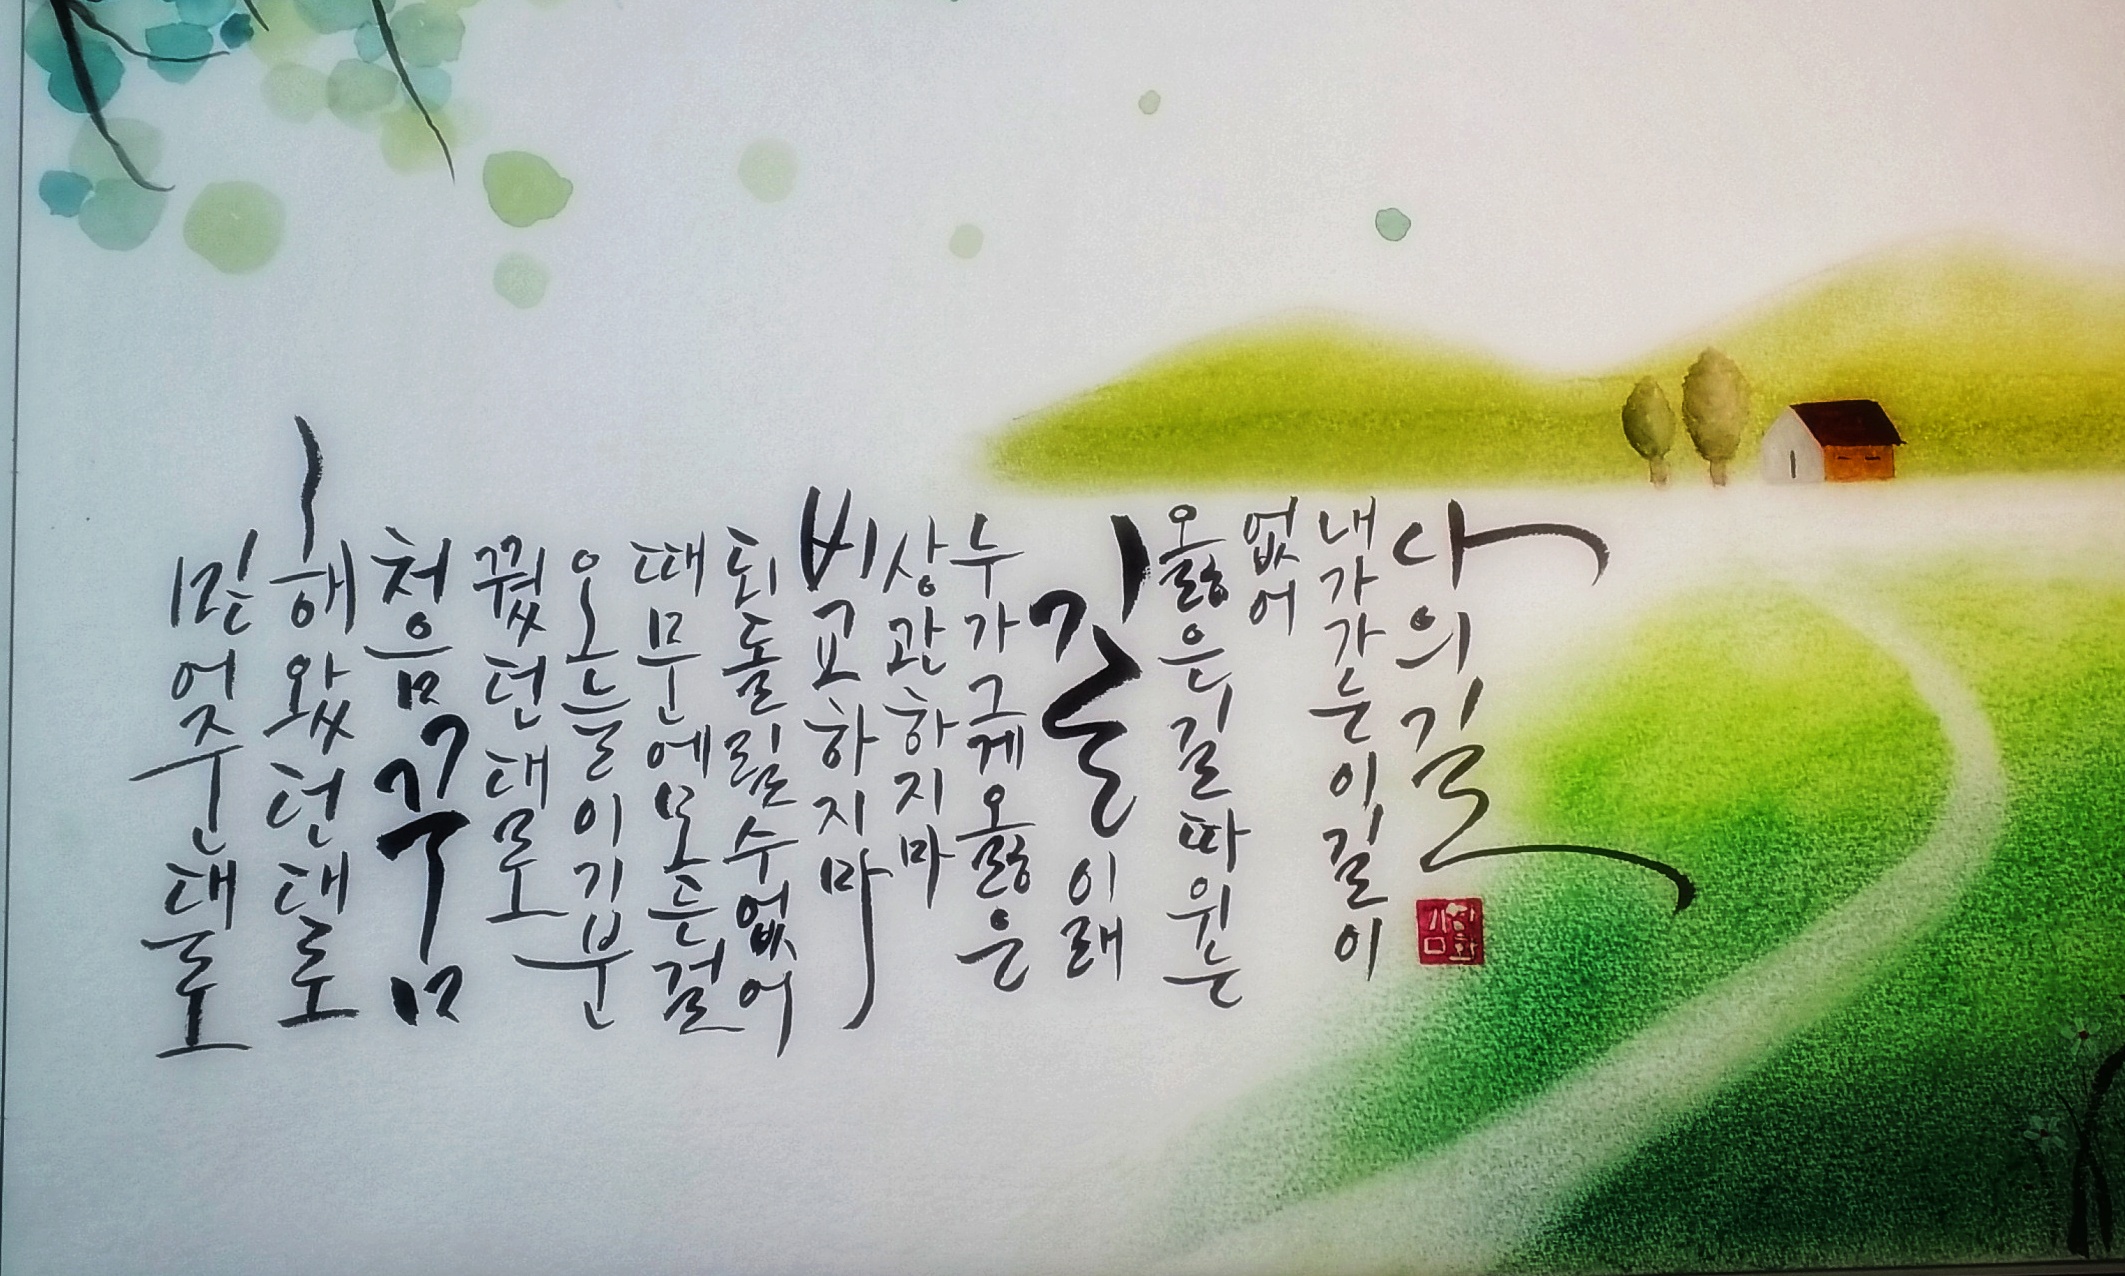 믿어준대로
해왔던대로
처음 꿈
꿨던대로
오늘이기분
때문에모든걸
되돌릴수없어
비교하지마
상관하지마
누가그게옳은
길이래
옳은길따위는
없어
내가가는이길이
나의길